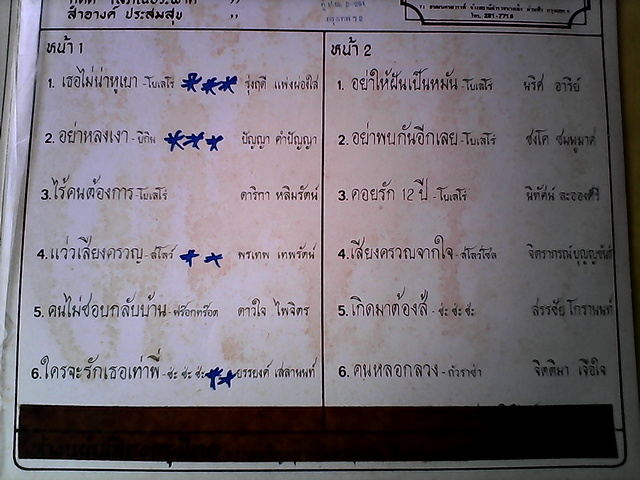 สำอางค์ ประสมสุข "
กรุงเทพฯ
โทร. 281-7718
หน้า 1
1. เธอไม่น่าหูเบา - โบเลโร่ รุ่งฤดี แพ่งผ่องใส
2. อย่าหลงเงา - บิกิน ปัญญา คำปัญญา
3. ไร้คนต้องการ - โบเลโร่ ดาริกา หลิมรัตน์
4. แว่วเสียงครวญ - สโลว์ พรเทพ เทพรัตน์
5. คนไม่ชอบกลับบ้าน - ฟร็อกทร็อต ดาวใจ ไพจิตร
6. ใครจะรักเธอเท่าพี่ - ช่ะ ช่ะ ช่ะ ยรรยงค์ เสลานนท์
หน้า 2
1. อย่าให้ฝันเป็นหมัน - โบเลโร่ นริศ อารีย์
2. อย่าพบกันอีกเลย - โบเลโร่ ชงโค ชมพูมาศ
3. คอยรัก 12 ปี - โบเลโร่ นิทัศน์ ละอองศรี
4. เสียงครวญจากใจ - สโลว์โซล จิตราภรณ์ บุญญขันธ์
5. เกิดมาต้องสู้ - ช่ะ ช่ะ ช่ะ สรรชัย โกรานนท์
6. คนหลอกลวง - กัวราช่า จิตติมา เจือใจ